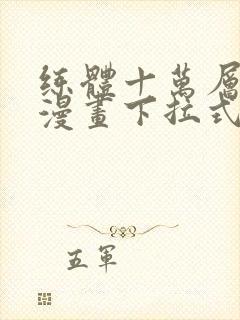 练體十萬層
漫畫下拉式
五軍